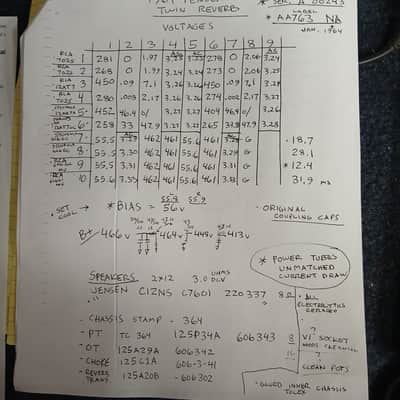 1964 FENDER
TWIN REVERB
VOLTAGES
* SER. A 00243
LABEL
* AA763 NA
JAN. 1964
1 2 3 4 5 6 7 8 9
RCA 7025 1 281 0 1.97 3.23 278 0 2.06 3.24
RCA 7025 2 268 0 1.97 3.24 3.24 273 0 2.05 3.25
12AT7 3 450 .09 9.1 3.26 3.26 450 .09 9.1 3.28
7025 4 280 .003 2.17 3.26 3.26 274 .002 2.17
5 452 46.4 0 3.27 3.27 404 46.4 0 3.26
6 259 33 47.9 3.27 3.27 265 47.9 3.28
7 55.5 462 461 55.6 461 G
8 55.5 3.30 462 461 55.6 461 3.29 G
9 55.5 3.31 462 461 55.6 461 3.31 G
10 55.6 3.35 462 461 55.6 461 G
• 18.7
28.1
* 12.4
31.9 ma
• SET COOL → * BIAS = 56V
• ORIGINAL
COUPLING CAPS
B+ 466V 464V 449V 413V
* POWER TUBES
UNMATCHED
CURRENT DRAW
SPEAKERS 2X12 3.0 OHMS DCV
JENSEN C12NS C7601 220337 8Ω
• ALL
ELECTROLYTICS
REPLACED
- CHASSIS STAMP - 364
- PT TC 364 125P34A 606343 8
- OT 125A29A - 606342
- CHOKE 125C1A - 606-3-41
- REVERB
TRANS. 125A20B - 606302
V1 SOCKET
CLEAN POTS
- GLUED INNER CHASSIS
TOLEX